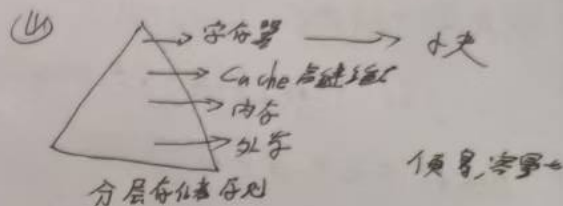 (4)
→ 寄存器 → 小快
→ Cache 高速缓存
→ 内存
→ 外存
分层存储原则
价易,容量大